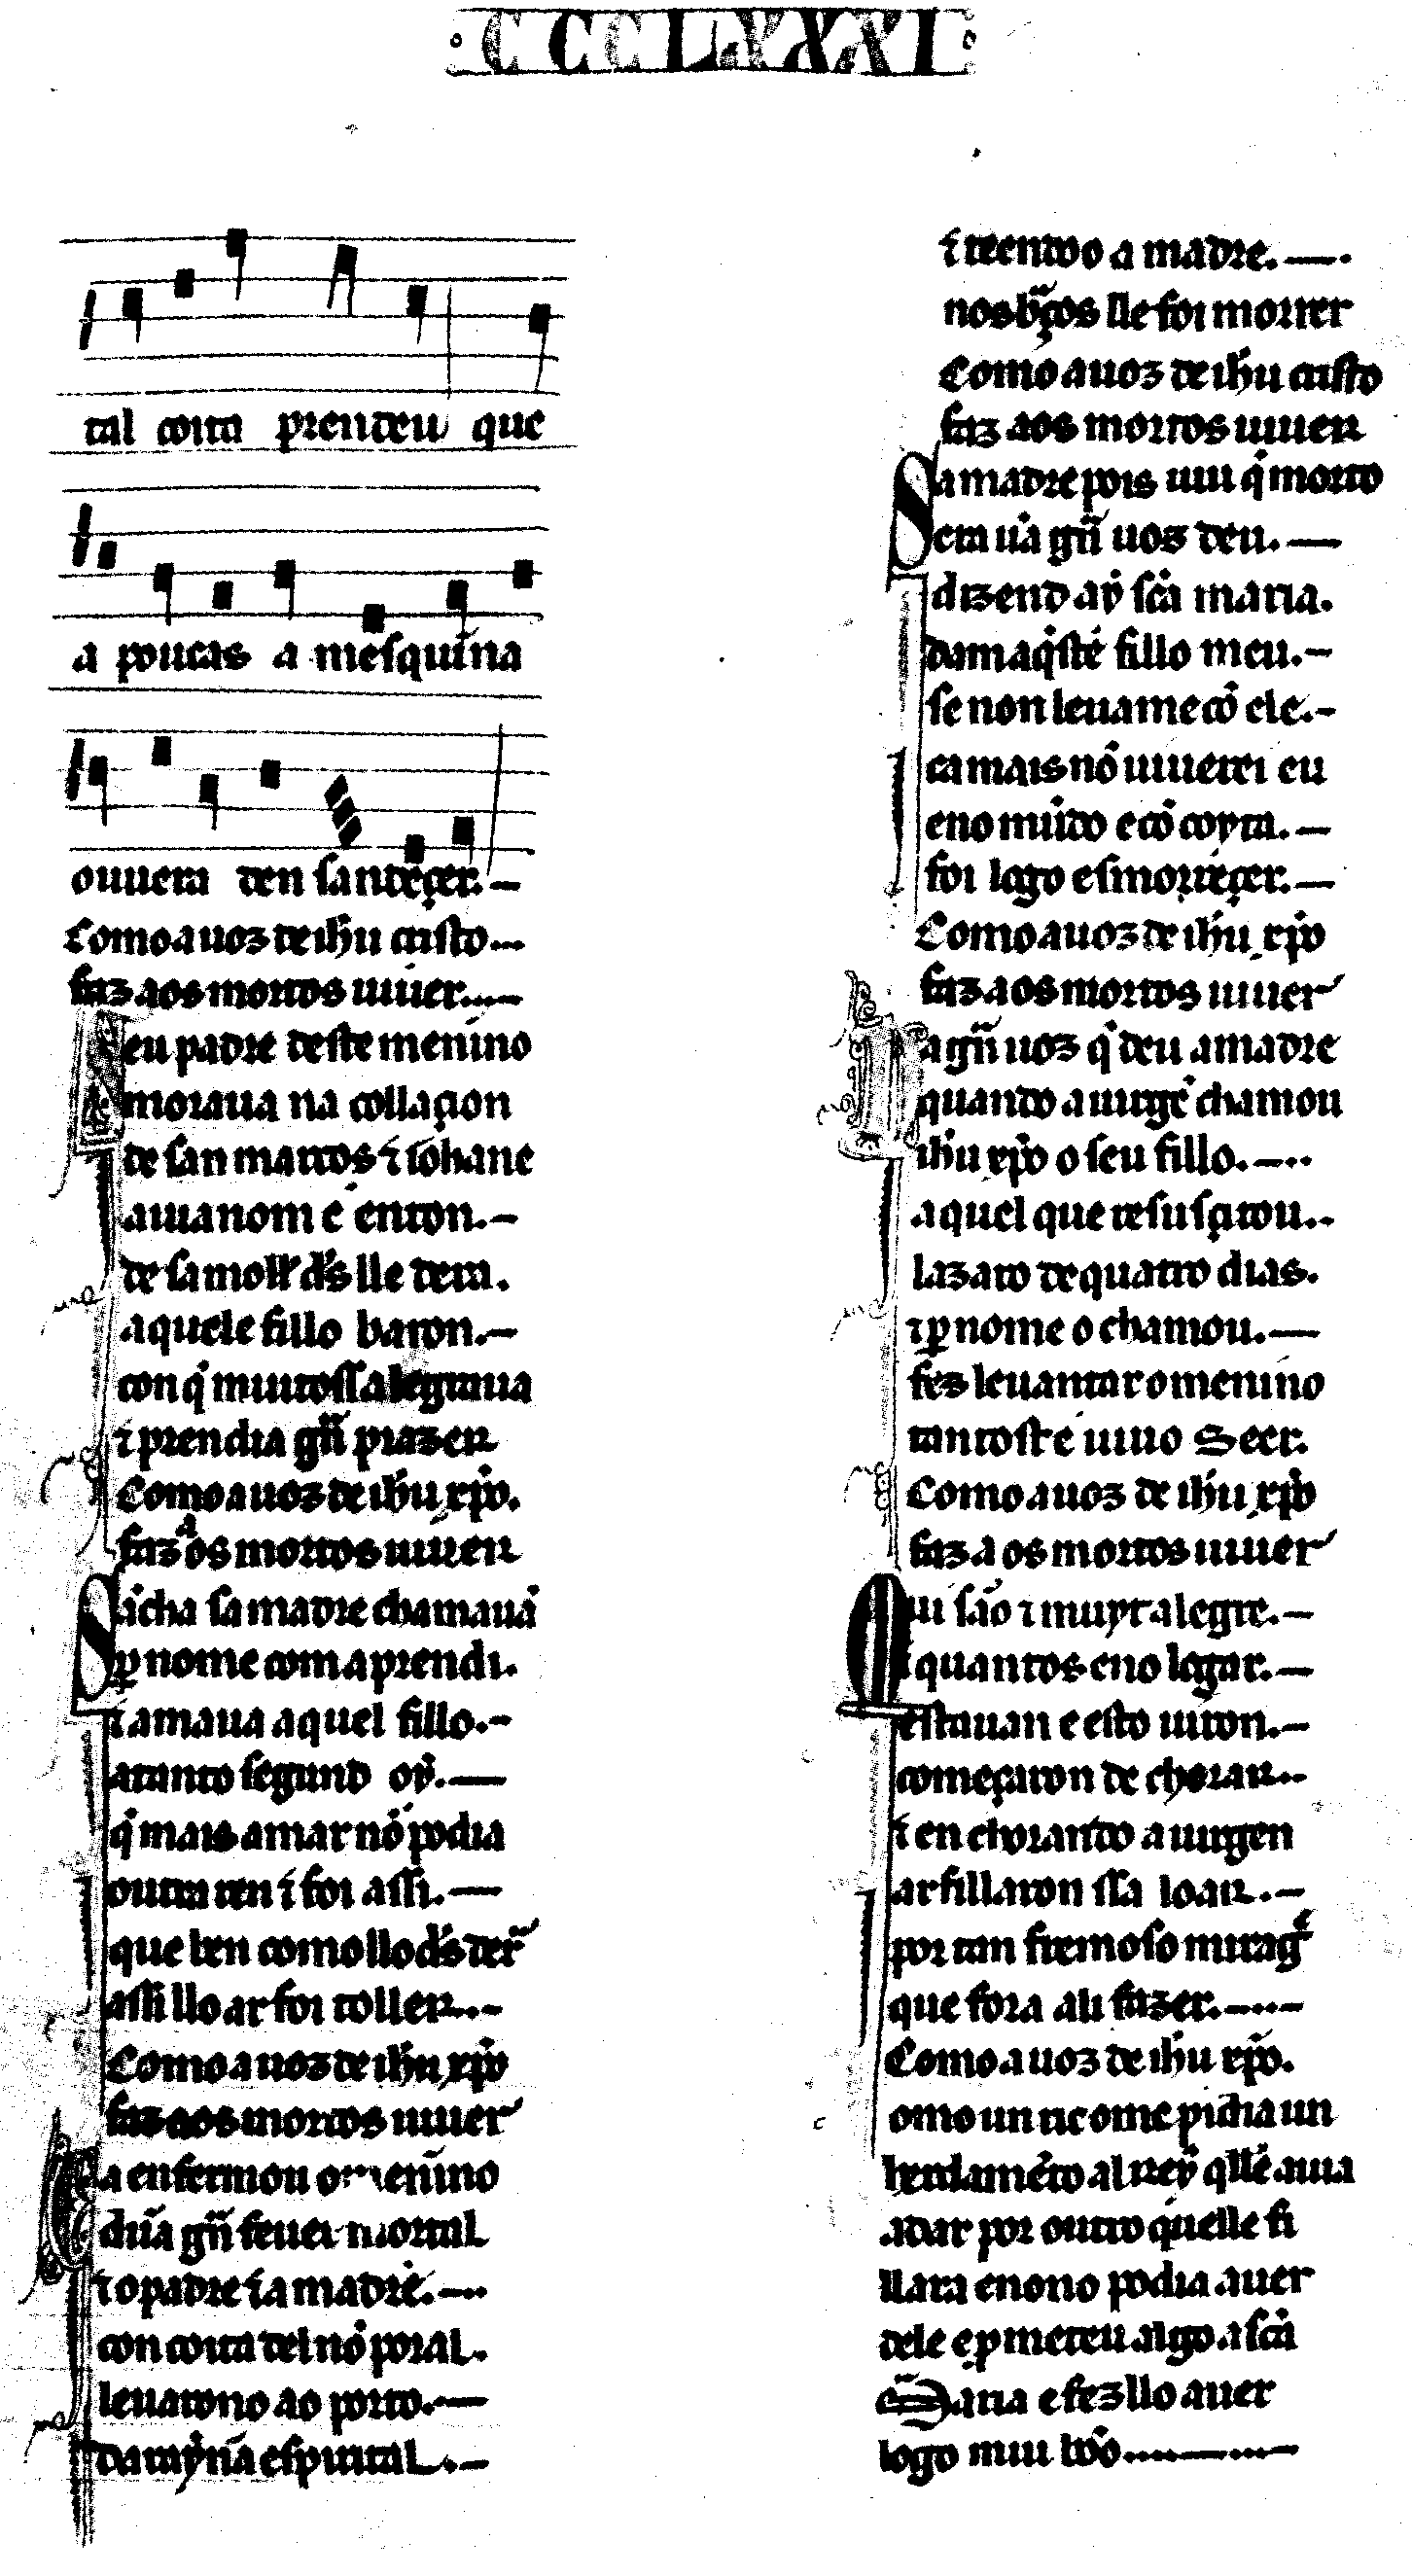 CCCLXXXI
tal coita prendeu que
a poucas a mesquin̄a
ouuera den sandeçer.—
Como a uoz de ih̄u cristo...
faz aos mortos uiuer....—
eu padre deste menino
moraua na collaçon
de san marcos ⁊ iohane
auia nom e enton.—
de sa moll̄r d̄s lle dera.
aquele fillo baron.—
con q̇ muito ss alegraua
⁊ prendia gr̄n prazer
Como a uoz de ih̄u xp̄o.
faz aos mortos uiuer
Sācha sa madre chamauā
ꝑ nome com aprendi.
⁊ amaua aquel fillo.—
atanto segund oý.—
q̇ mais amar nō podia
outra ren ⁊ foi assi.—
que ben como llo d̄s der̄
assi llo ar foi toller...—
Como a uoz de ih̄u xp̄o
faz aos mortos uiuer
a enfermou o menino
dūa gr̄n feuer mortal
⁊ o padre ⁊ a madre.—..
con coita del nō por al.
leuarono ao porto.—
da reyn̄a espirital..—
⁊ teendoo a madre.—.
nos br̄ços lle foi morrer
Como a uoz de ih̄u cristo
faz aos mortos uiuer
Sa madre pois uiu q̇ morto
era ūa gr̄n uoz deu.—
dizend aý sc̄a maria.
dam aq̇sté fillo meu.—
se non leuame cō ele.—
ca mais nō uiuerei eu
eno mūdo e cō coyta.—
foi logo esmorreçer.—
Como a uoz de ih̄u xp̄o
faz aos mortos uiuer
a gr̄n uoz q̇ deu a madre
quando a uirgē chamou
ih̄u xp̄o o seu fillo.—..
aquel que resusçitou..
lazaro de quatro dias.
⁊ ꝑ nome o chamou.—
fez leuantar o menino
tantoste uiuo seer.
Como a uoz de ih̄u xp̄o
faz a os mortos uiuer
Mui sāo ⁊ muyt alegre.—
quantos eno logar.—
estauan e esto uiron.—
começaron de chorar..
⁊ en chorando a uirgen
ar fillaron ssa loar..—
por tan fremoso miragre
que fora ali fazer.—..—
Como a uoz de ih̄u xp̄o.
omo un ric ome pidia un
herdamēto al rey q̇ lle auia
a dar por outro que lle fi
llara e nono podia auer
dele e ꝓmeteu algo a sc̄a
Maria e fez llo auer
logo mui bōo....—...—